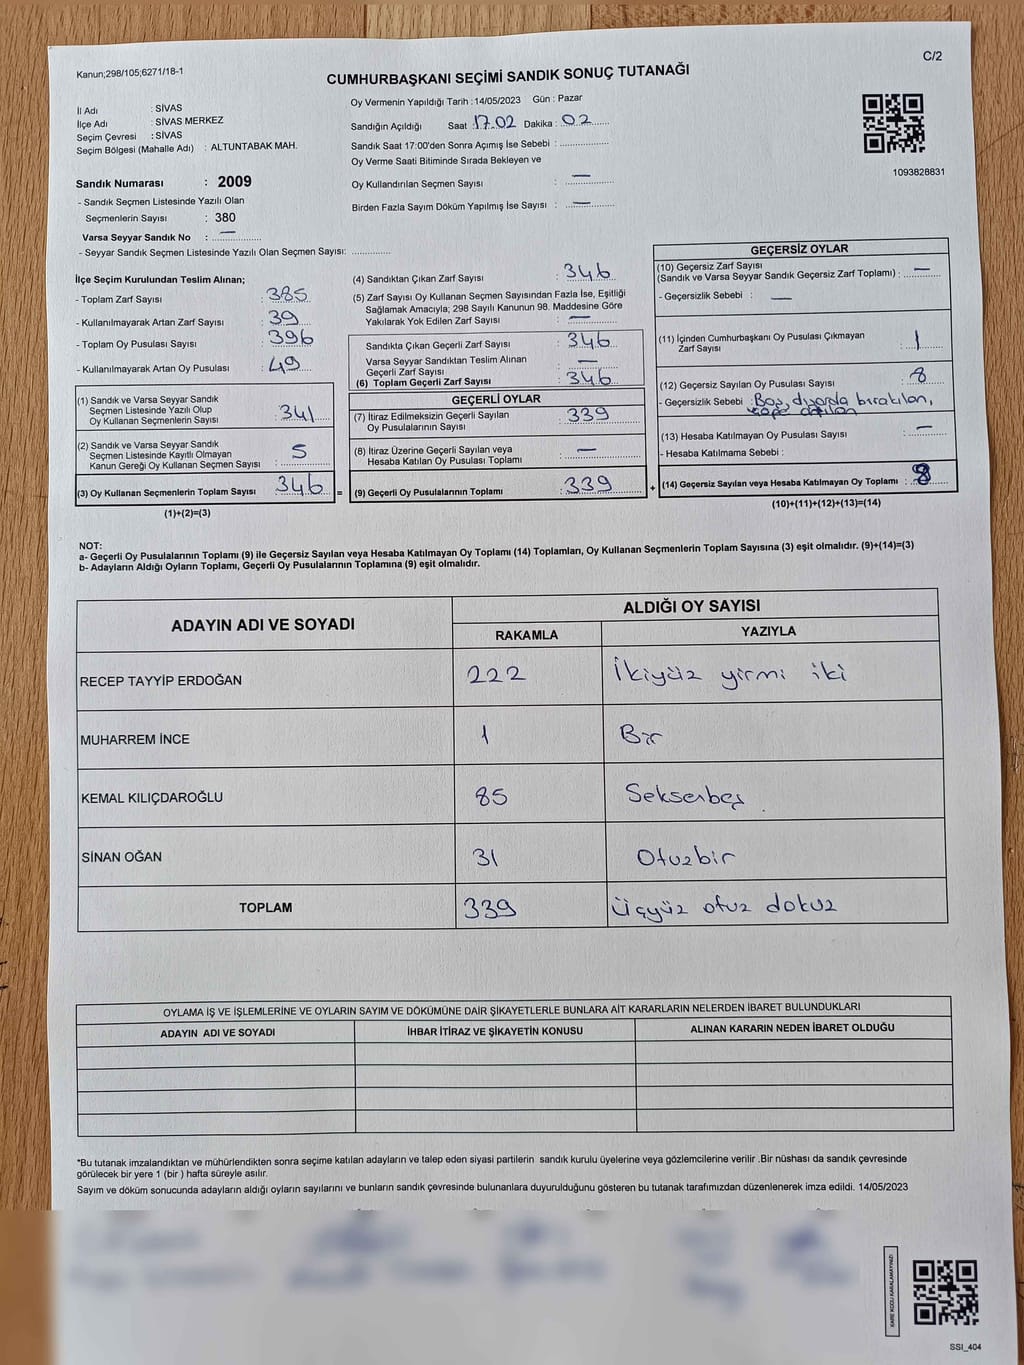 Kanun;298/105;6271/18-1
C/2
CUMHURBAŞKANI SEÇİMİ SANDIK SONUÇ TUTANAĞI
İl Adı : SİVAS
İlçe Adı : SİVAS MERKEZ
Seçim Çevresi : SİVAS
Seçim Bölgesi (Mahalle Adı) : ALTUNTABAK MAH.
Sandık Numarası : 2009
- Sandık Seçmen Listesinde Yazılı Olan
Seçmenlerin Sayısı : 380
Varsa Seyyar Sandık No : —
- Seyyar Sandık Seçmen Listesinde Yazılı Olan Seçmen Sayısı: ............
Oy Vermenin Yapıldığı Tarih : 14/05/2023 Gün : Pazar
Sandığın Açıldığı Saat : 17.02 Dakika : 02
Sandık Saat 17:00'den Sonra Açımış İse Sebebi : ...............
Oy Verme Saati Bitiminde Sırada Bekleyen ve
Oy Kullandırılan Seçmen Sayısı : —
Birden Fazla Sayım Döküm Yapılmış İse Sayısı : —
1093828831
İlçe Seçim Kurulundan Teslim Alınan;
- Toplam Zarf Sayısı : 385
- Kullanılmayarak Artan Zarf Sayısı : 39
- Toplam Oy Pusulası Sayısı : 396
- Kullanılmayarak Artan Oy Pusulası : 49
(1) Sandık ve Varsa Seyyar Sandık
Seçmen Listesinde Yazılı Olup
Oy Kullanan Seçmenlerin Sayısı : 341
(2) Sandık ve Varsa Seyyar Sandık
Seçmen Listesinde Kayıtlı Olmayan
Kanun Gereği Oy Kullanan Seçmen Sayısı : 5
(3) Oy Kullanan Seçmenlerin Toplam Sayısı : 346 =
(1)+(2)=(3)
(4) Sandıktan Çıkan Zarf Sayısı : 346
(5) Zarf Sayısı Oy Kullanan Seçmen Sayısından Fazla İse, Eşitliği
Sağlamak Amacıyla; 298 Sayılı Kanunun 98. Maddesine Göre
Yakılarak Yok Edilen Zarf Sayısı : —
Sandıkta Çıkan Geçerli Zarf Sayısı : 346
Varsa Seyyar Sandıktan Teslim Alınan
Geçerli Zarf Sayısı : —
(6) Toplam Geçerli Zarf Sayısı : 346
GEÇERLİ OYLAR
(7) İtiraz Edilmeksizin Geçerli Sayılan
Oy Pusulalarının Sayısı : 339
(8) İtiraz Üzerine Geçerli Sayılan veya
Hesaba Katılan Oy Pusulası Toplamı : —
(9) Geçerli Oy Pusulalarının Toplamı : 339 +
GEÇERSİZ OYLAR
(10) Geçersiz Zarf Sayısı
(Sandık ve Varsa Seyyar Sandık Geçersiz Zarf Toplamı) : —
- Geçersizlik Sebebi : —
(11) İçinden Cumhurbaşkanı Oy Pusulası Çıkmayan
Zarf Sayısı : 1
(12) Geçersiz Sayılan Oy Pusulası Sayısı : 8
- Geçersizlik Sebebi : Boş, dışarda bırakılan,
(13) Hesaba Katılmayan Oy Pusulası Sayısı : —
- Hesaba Katılmama Sebebi :
(14) Geçersiz Sayılan veya Hesaba Katılmayan Oy Toplamı : 8
(10)+(11)+(12)+(13)=(14)
NOT:
a- Geçerli Oy Pusulalarının Toplamı (9) ile Geçersiz Sayılan veya Hesaba Katılmayan Oy Toplamı (14) Toplamları, Oy Kullanan Seçmenlerin Toplam Sayısına (3) eşit olmalıdır. (9)+(14)=(3)
b- Adayların Aldığı Oyların Toplamı, Geçerli Oy Pusulalarının Toplamına (9) eşit olmalıdır.
ADAYIN ADI VE SOYADI
ALDIĞI OY SAYISI
RAKAMLA YAZIYLA
RECEP TAYYİP ERDOĞAN 222 İkiyüz yirmi iki
MUHARREM İNCE 1 Bir
KEMAL KILIÇDAROĞLU 85 Seksenbeş
SİNAN OĞAN 31 Otuzbir
TOPLAM 339 Üçyüz otuz dokuz
OYLAMA İŞ VE İŞLEMLERİNE VE OYLARIN SAYIM VE DÖKÜMÜNE DAİR ŞİKAYETLERLE BUNLARA AİT KARARLARIN NELERDEN İBARET BULUNDUKLARI
ADAYIN ADI VE SOYADI İHBAR İTİRAZ VE ŞİKAYETİN KONUSU ALINAN KARARIN NEDEN İBARET OLDUĞU
*Bu tutanak imzalandıktan ve mühürlendikten sonra seçime katılan adayların ve talep eden siyasi partilerin sandık kurulu üyelerine veya gözlemcilerine verilir .Bir nüshası da sandık çevresinde
görülecek bir yere 1 (bir ) hafta süreyle asılır.
Sayım ve döküm sonucunda adayların aldığı oyların sayılarını ve bunların sandık çevresinde bulunanlara duyurulduğunu gösteren bu tutanak tarafımızdan düzenlenerek imza edildi. 14/05/2023
KARE KODU KARALAMAYINIZ!
SSI_404